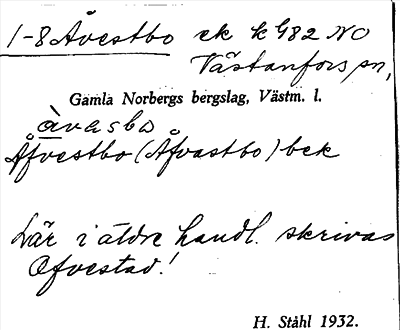 1-8 Åvestbo ek k 982 NO
Västanfors sn,
Gamla Norbergs bergslag, Västm. l.
àvɑsbo
Åfvestbo (Åfvastbo) bek
Lär i äldre handl. skrivas
Ofvestad!
H. Ståhl 1932.